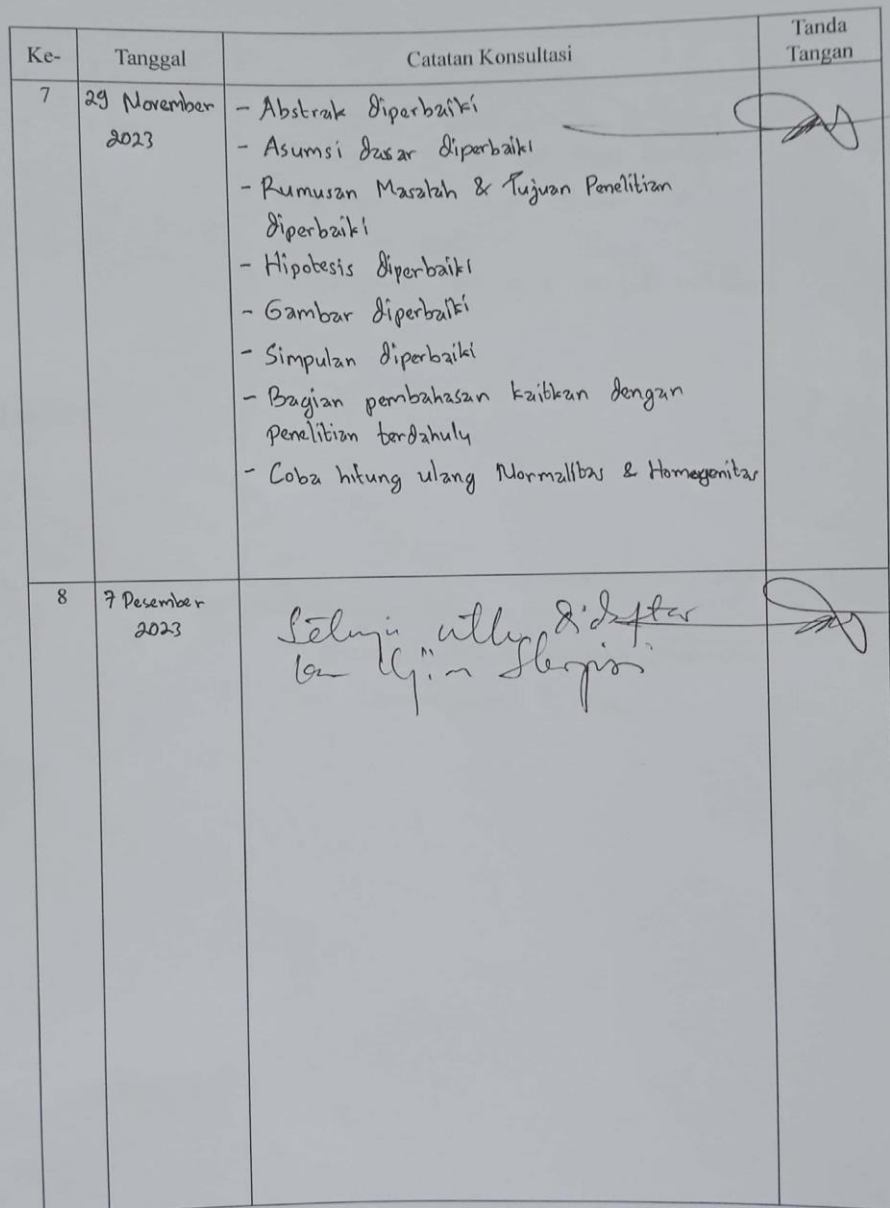 Ke-
Tanggal
Catatan Konsultasi
Tanda
Tangan
7
29 November
2023
- Abstrak diperbaiki
- Asumsi dasar diperbaiki
- Rumusan Masalah & Tujuan Penelitian
diperbaiki
- Hipotesis diperbaiki
- Gambar diperbaiki
- Simpulan diperbaiki
- Bagian pembahasan kaitkan dengan
penelitian terdahulu
- Coba hitung ulang Normalitas & Homogenitas
8
7 Desember
2023
didaftar
kan Ujian